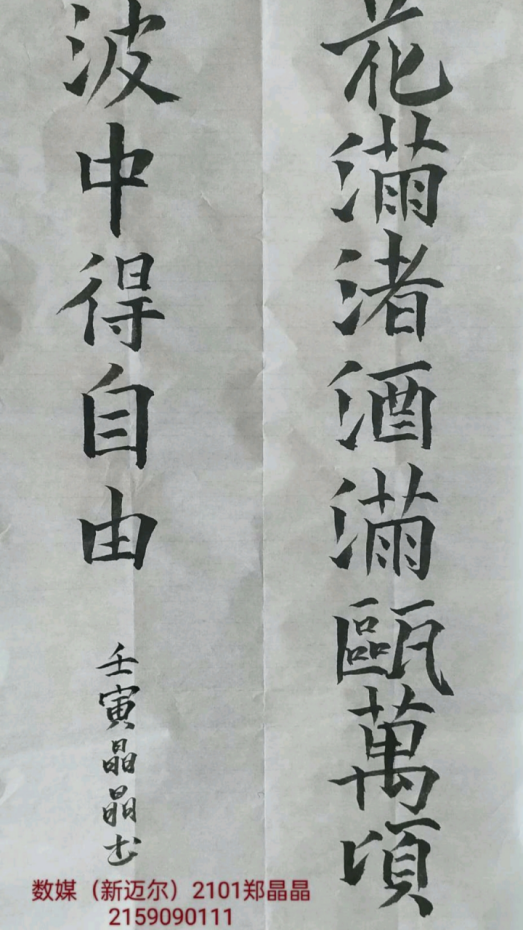 花满渚酒满甌萬頃
波中得自由
壬寅晶晶书
数媒（新迈尔）2101郑晶晶
2159090111